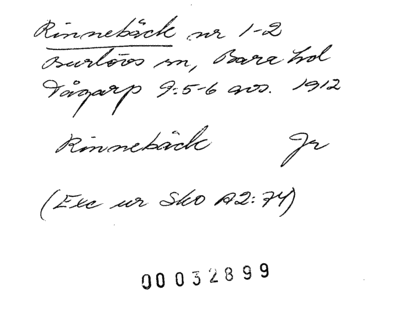 Rinnebäck nr 1-2
Burlövs sn, Bara hd
Tågarp 9:5-6 avs. 1912
Rinnebäck Jr
(Exc ur Sko A2:74)
00032899